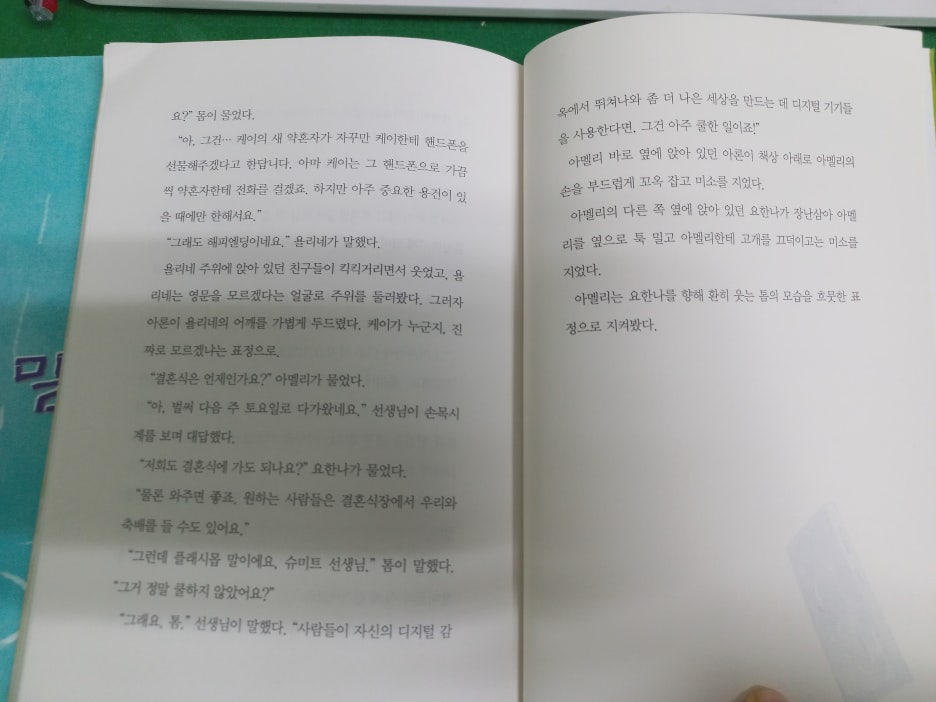 요?" 톰이 물었다.
"아, 그건… 케이의 새 약혼자가 자꾸만 케이한테 핸드폰을
선물해주겠다고 한답니다. 아마 케이는 그 핸드폰으로 가끔
씩 약혼자한테 전화를 걸겠죠. 하지만 아주 중요한 용건이 있
을 때에만 한해서요."
"그래도 해피엔딩이네요." 율리네가 말했다.
율리네 주위에 앉아 있던 친구들이 킥킥거리면서 웃었고, 율
리네는 영문을 모르겠다는 얼굴로 주위를 둘러봤다. 그러자
아론이 율리네의 어깨를 가볍게 두드렸다. 케이가 누군지, 진
짜로 모르겠냐는 표정으로.
"결혼식은 언제인가요?" 아멜리가 물었다.
"아, 벌써 다음 주 토요일로 다가왔네요." 선생님이 손목시
계를 보며 대답했다.
"저희도 결혼식에 가도 되나요?" 요한나가 물었다.
"물론 와주면 좋죠. 원하는 사람들은 결혼식장에서 우리와
축배를 들 수도 있어요."
"그런데 플래시몹 말이에요, 슈미트 선생님." 톰이 말했다.
"그거 정말 쿨하지 않았어요?"
"그래요, 톰." 선생님이 말했다. "사람들이 자신의 디지털 감
옥에서 뛰쳐나와 좀 더 나은 세상을 만드는 데 디지털 기기들
을 사용한다면, 그건 아주 쿨한 일이죠!"
아멜리 바로 옆에 앉아 있던 아론이 책상 아래로 아멜리의
손을 부드럽게 꼬옥 잡고 미소를 지었다.
아멜리의 다른 쪽 옆에 앉아 있던 요한나가 장난삼아 아멜
리를 옆으로 툭 밀고 아멜리한테 고개를 끄덕이고는 미소를
지었다.
아멜리는 요한나를 향해 환히 웃는 톰의 모습을 흐뭇한 표
정으로 지켜봤다.